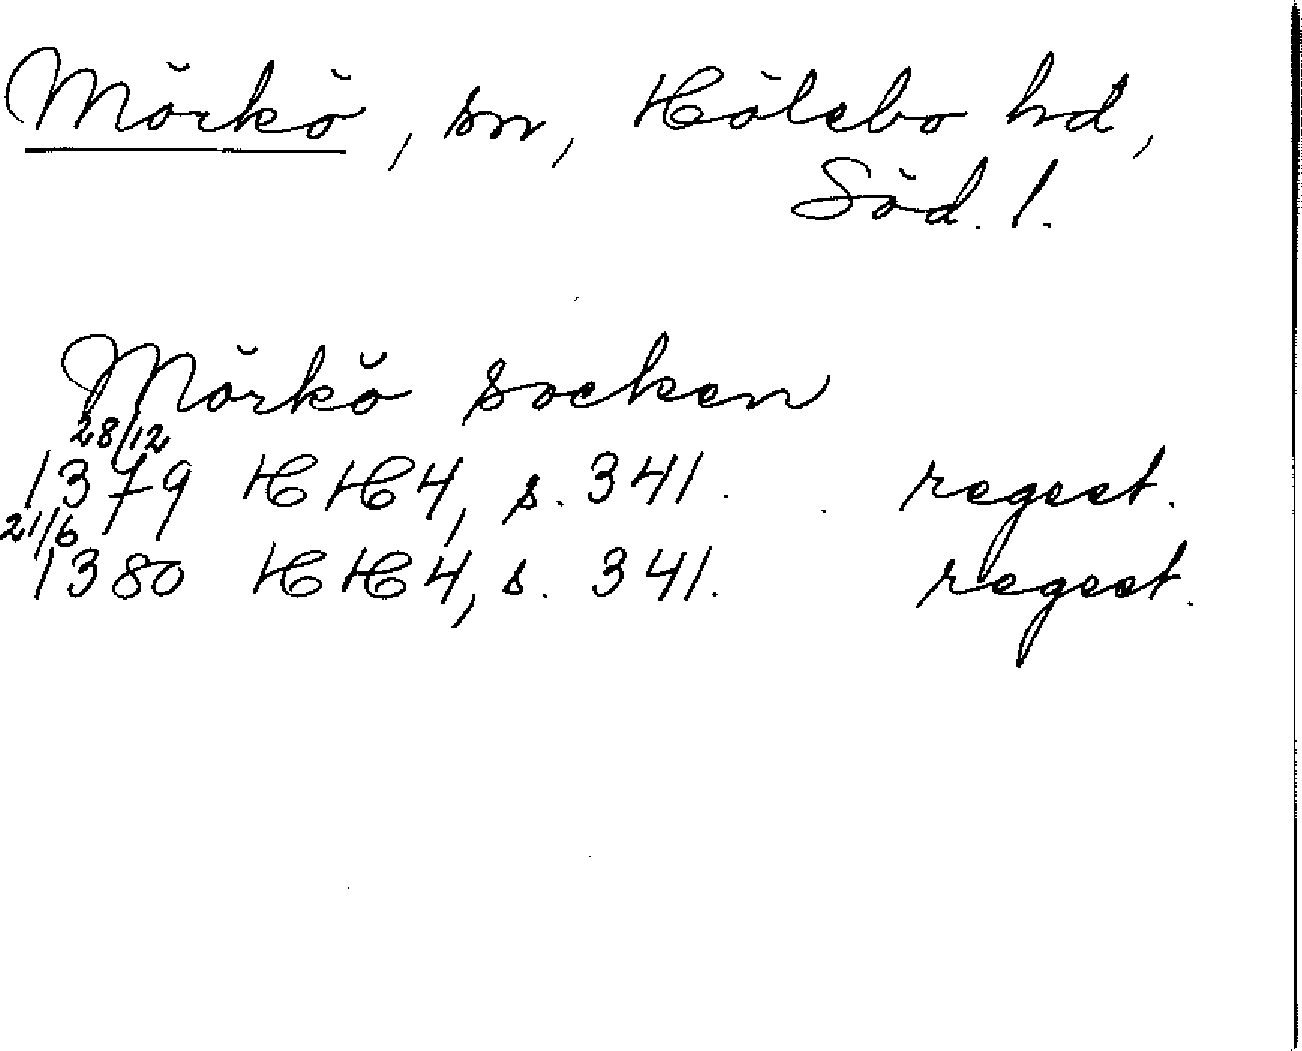 Mörkö, sn, Hölebo hd,
Söd. l.
Mörkö socken
28/12
1379 HH 4, s. 341. regest.
21/6
1380 HH 4, s. 341. regest.